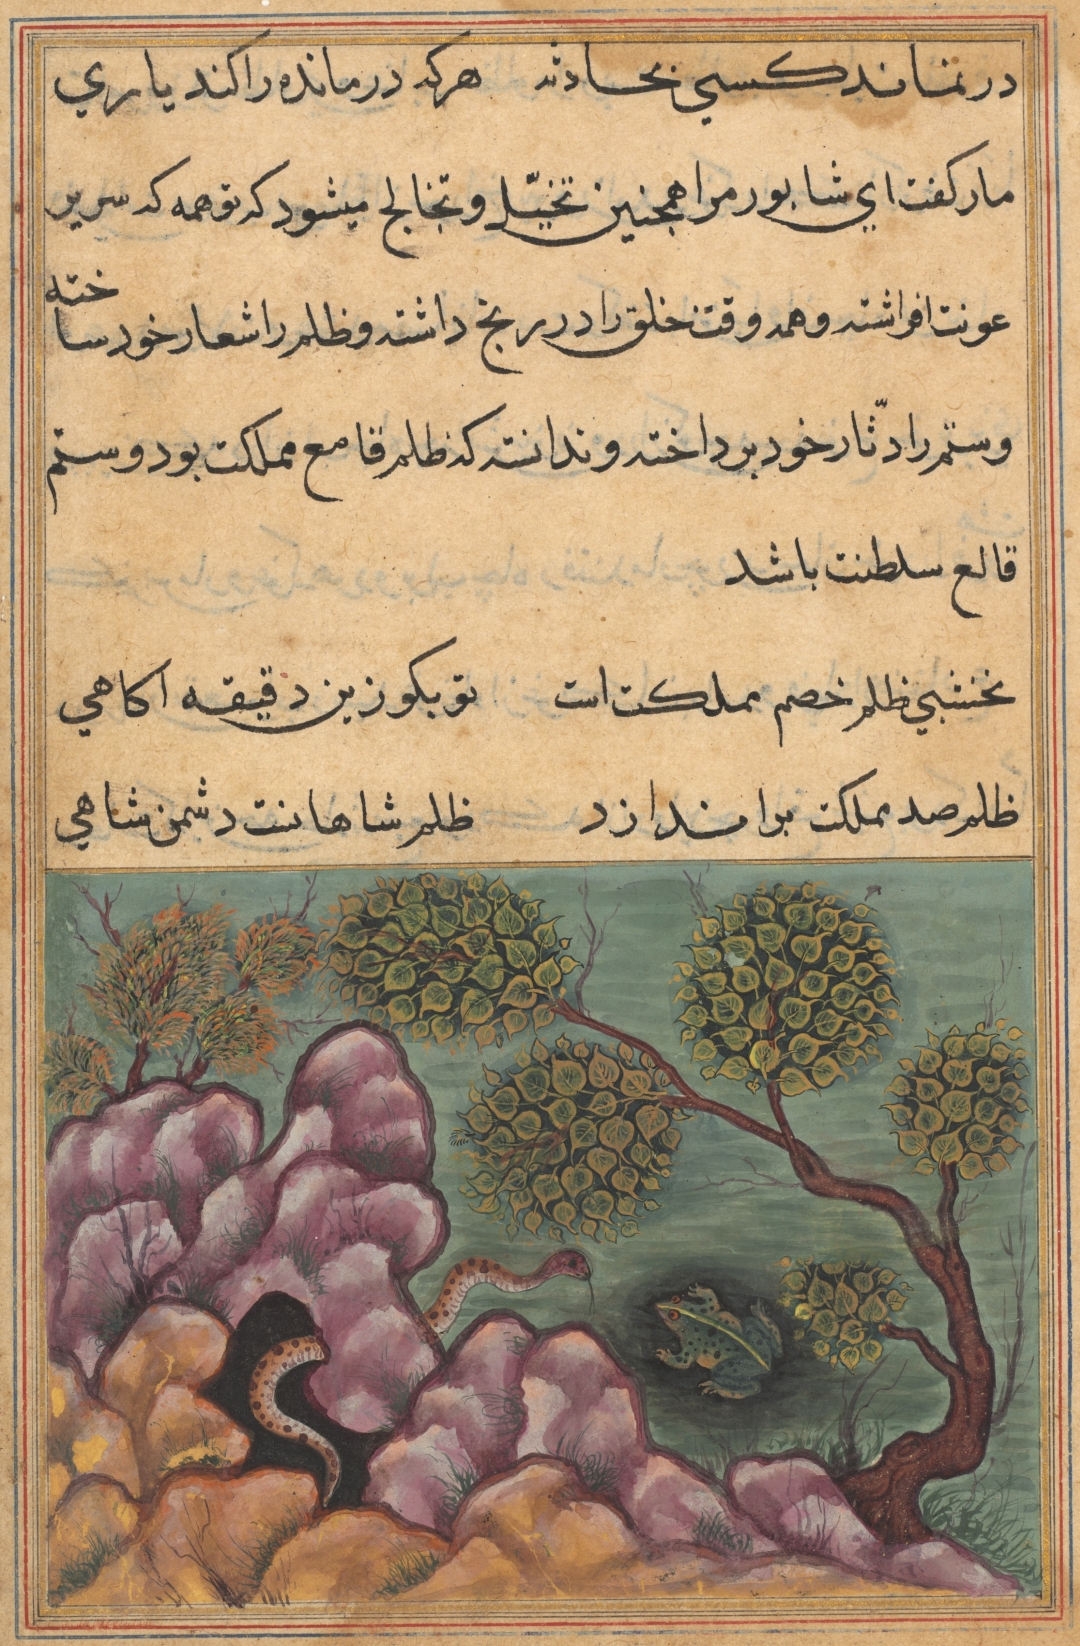 در نماند کسی بحادثه هرکه درمانده را کند یاری
مار کفت ای شابور مرا همچنین تخیّل و تخالج میشود که تو همه که سریر
عونت افراشته و همه وقت خلق را در رنج داشته و ظلم را شعار خود ساخته
و ستم را دثّار خود برداخته و ندانسته که ظلم قامع مملکت بود و ستم
قالع سلطنت باشد
نخشبی ظلم خصم مملکت است تو بکو زین دقیقه اکاهی
ظلم صد مملکت براندازد ظلم شاهانت دشمن شاهی